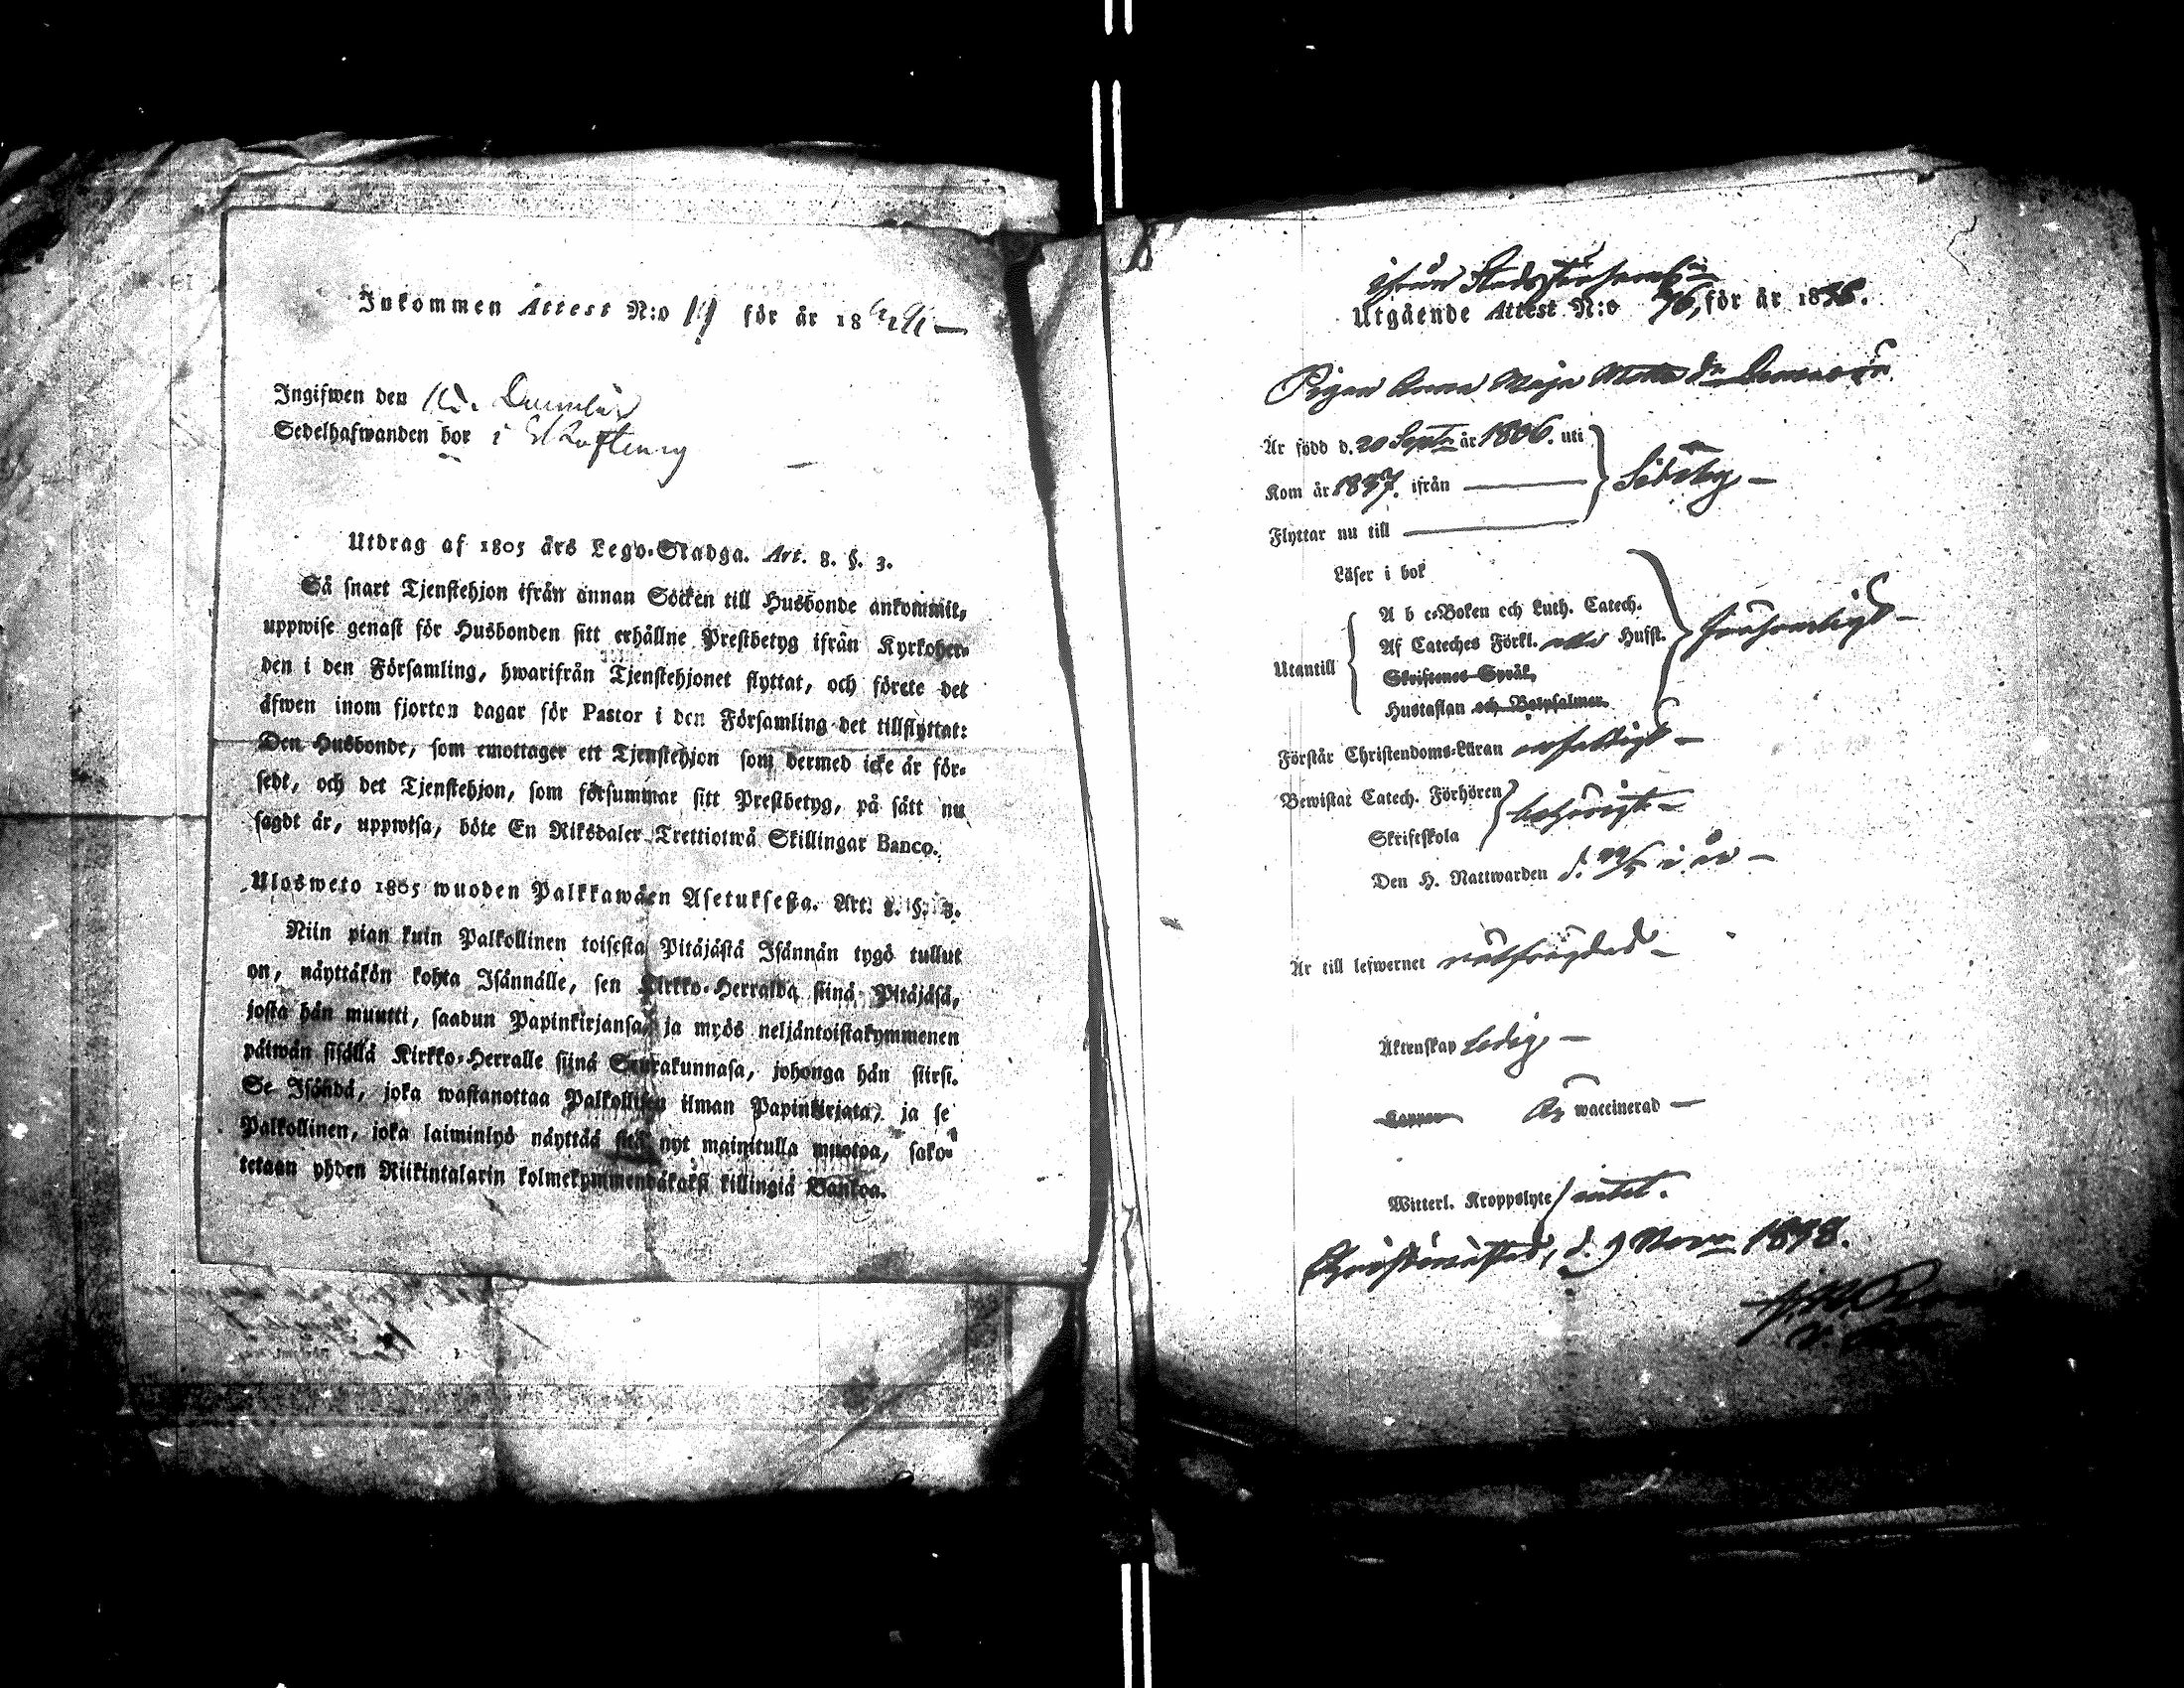 Inkommen Attest N:o 11 för år 18
Ingifwen den
Sedelhafwanden bor i Skaftung
Utdrag af 1805 års Lego-Stadga. Art. 8. §. 3.
Så snart Tjenstehjon ifrån annan Socken till Husbonde ankommit,
uppwise genast för Husbonden sitt erhållne Prestbetyg ifrån Kyrkoher-
den i den Församling, hwarifrån Tjenstehjonet flyttat, och förete det
äfwen inom fjorton dagar för Pastor i den Församling det tillflyttat:
Den Husbonde, som emottager ett Tjenstehjon som dermed icke är för-
sedt, och det Tjenstehjon, som försummar sitt Prestbetyg, på sätt nu
sagdt är, uppwisa, böte En Riksdaler Trettiotwå Skillingar Banco.
Ulosweto 1805 wuoden Palkkawäen Asetuksesta. Art. 8. §. 3.
Niin pian kuin Palkollinen toisesta Pitäjästä Isännän tygö tullut
on, näyttäkön kohta Isännälle, sen Kirkko-Herralda siinä Pitäjäsä,
josta hän muutti, saadun Papinkirjansa, ja myös neljäntoistakymmenen
päiwän sisällä Kirkko-Herralle siinä Seurakunnasa, johonga hän siirsi.
Se Isändä, joka wastanottaa Palkollisen ilman Papinkirjata, ja se
Palkollinen, joka laiminlyö näyttää sitä nyt mainitulla muotoa, sako-
tetaan yhden Riikintalarin kolmekymmendäkaksi killingiä Bankoa.
ifrån Stadsförsaml:n
Utgående Attest N:o 76, för år 1838.
Pigan Anna Maja Matts dr
Är född d. 20 Septr år 1806. uti
Kom år 1837. ifrån
Sideby
Flyttar nu till
Läser i bok
A b c-Boken och Luth. Catech.
Af Cateches Förkl. Husft.
Utantill
Skriftenes Språk,
Hustaflan och Botpsalmer.
Förstår Christendoms-Läran
Bewistat Catech. Förhören
behörigt
Skriftskola
Den H. Nattwarden d. i år
Är till lefwernet
Äktenskap Ledig
Koppor Är waccinerad
Witterl. Kroppslyte intet.
Christinestad, d. 9 Novr 1838.